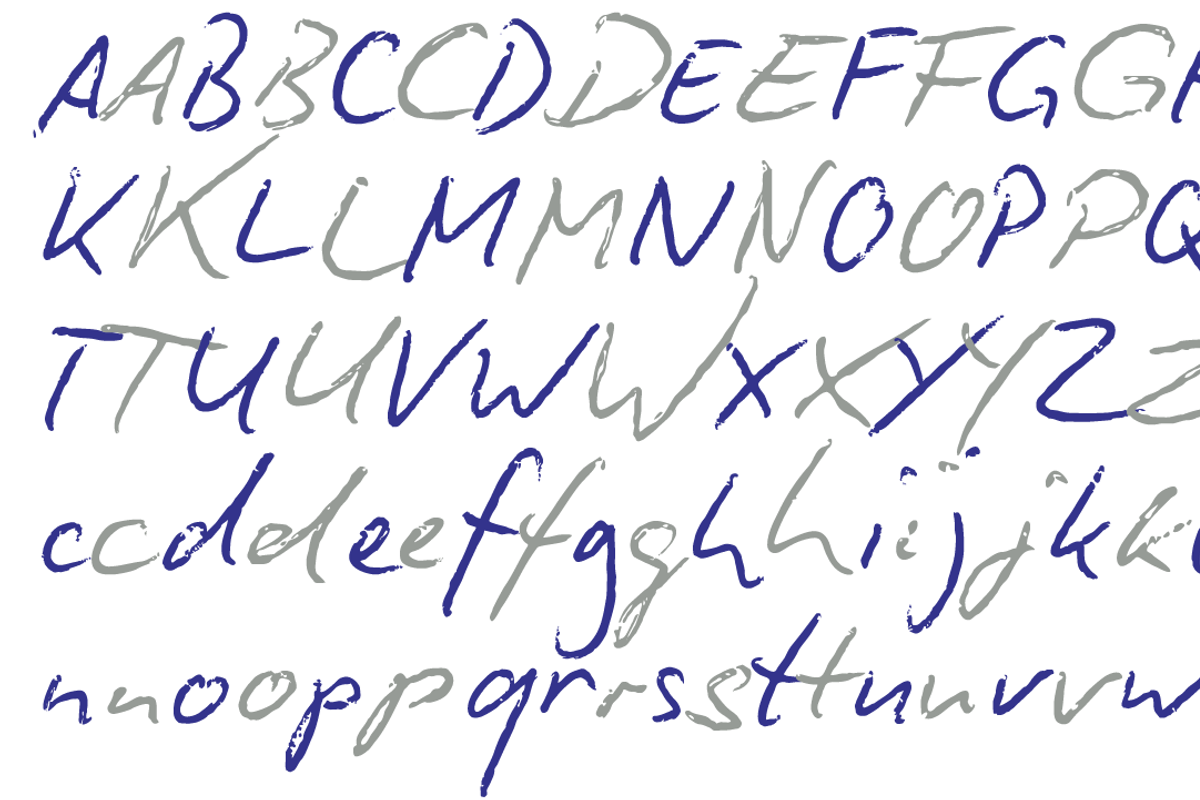 AABBCCDDEEFFGG
KKLLMMNNOOPPQ
TTUUVVWWXXYYZZ
ccddeeffgghhiijjkk
nnooppqrrssttuuvvw